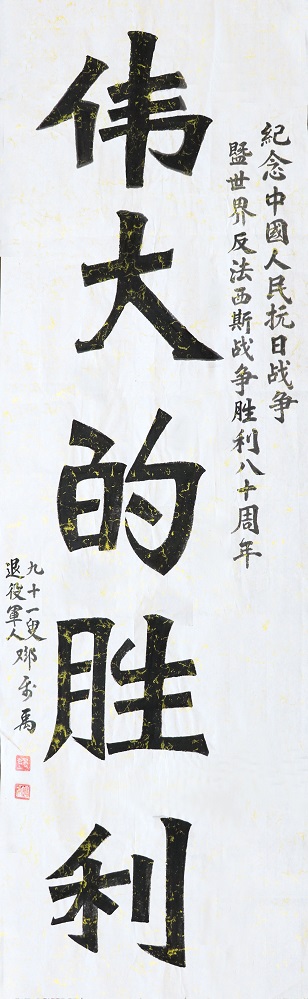 紀念中國人民抗日战争
暨世界反法西斯战争胜利八十周年
伟大的胜利
九十一叟
退役軍人